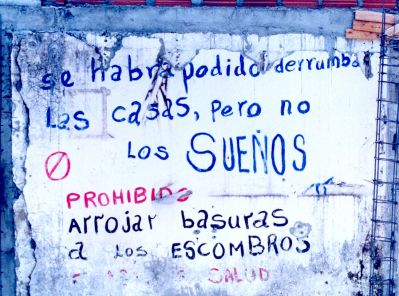 se habrá podido derrumbar
las casas, pero no
los SUEÑOS
PROHIBIDO
arrojar basuras
a los ESCOMBROS
SALUD